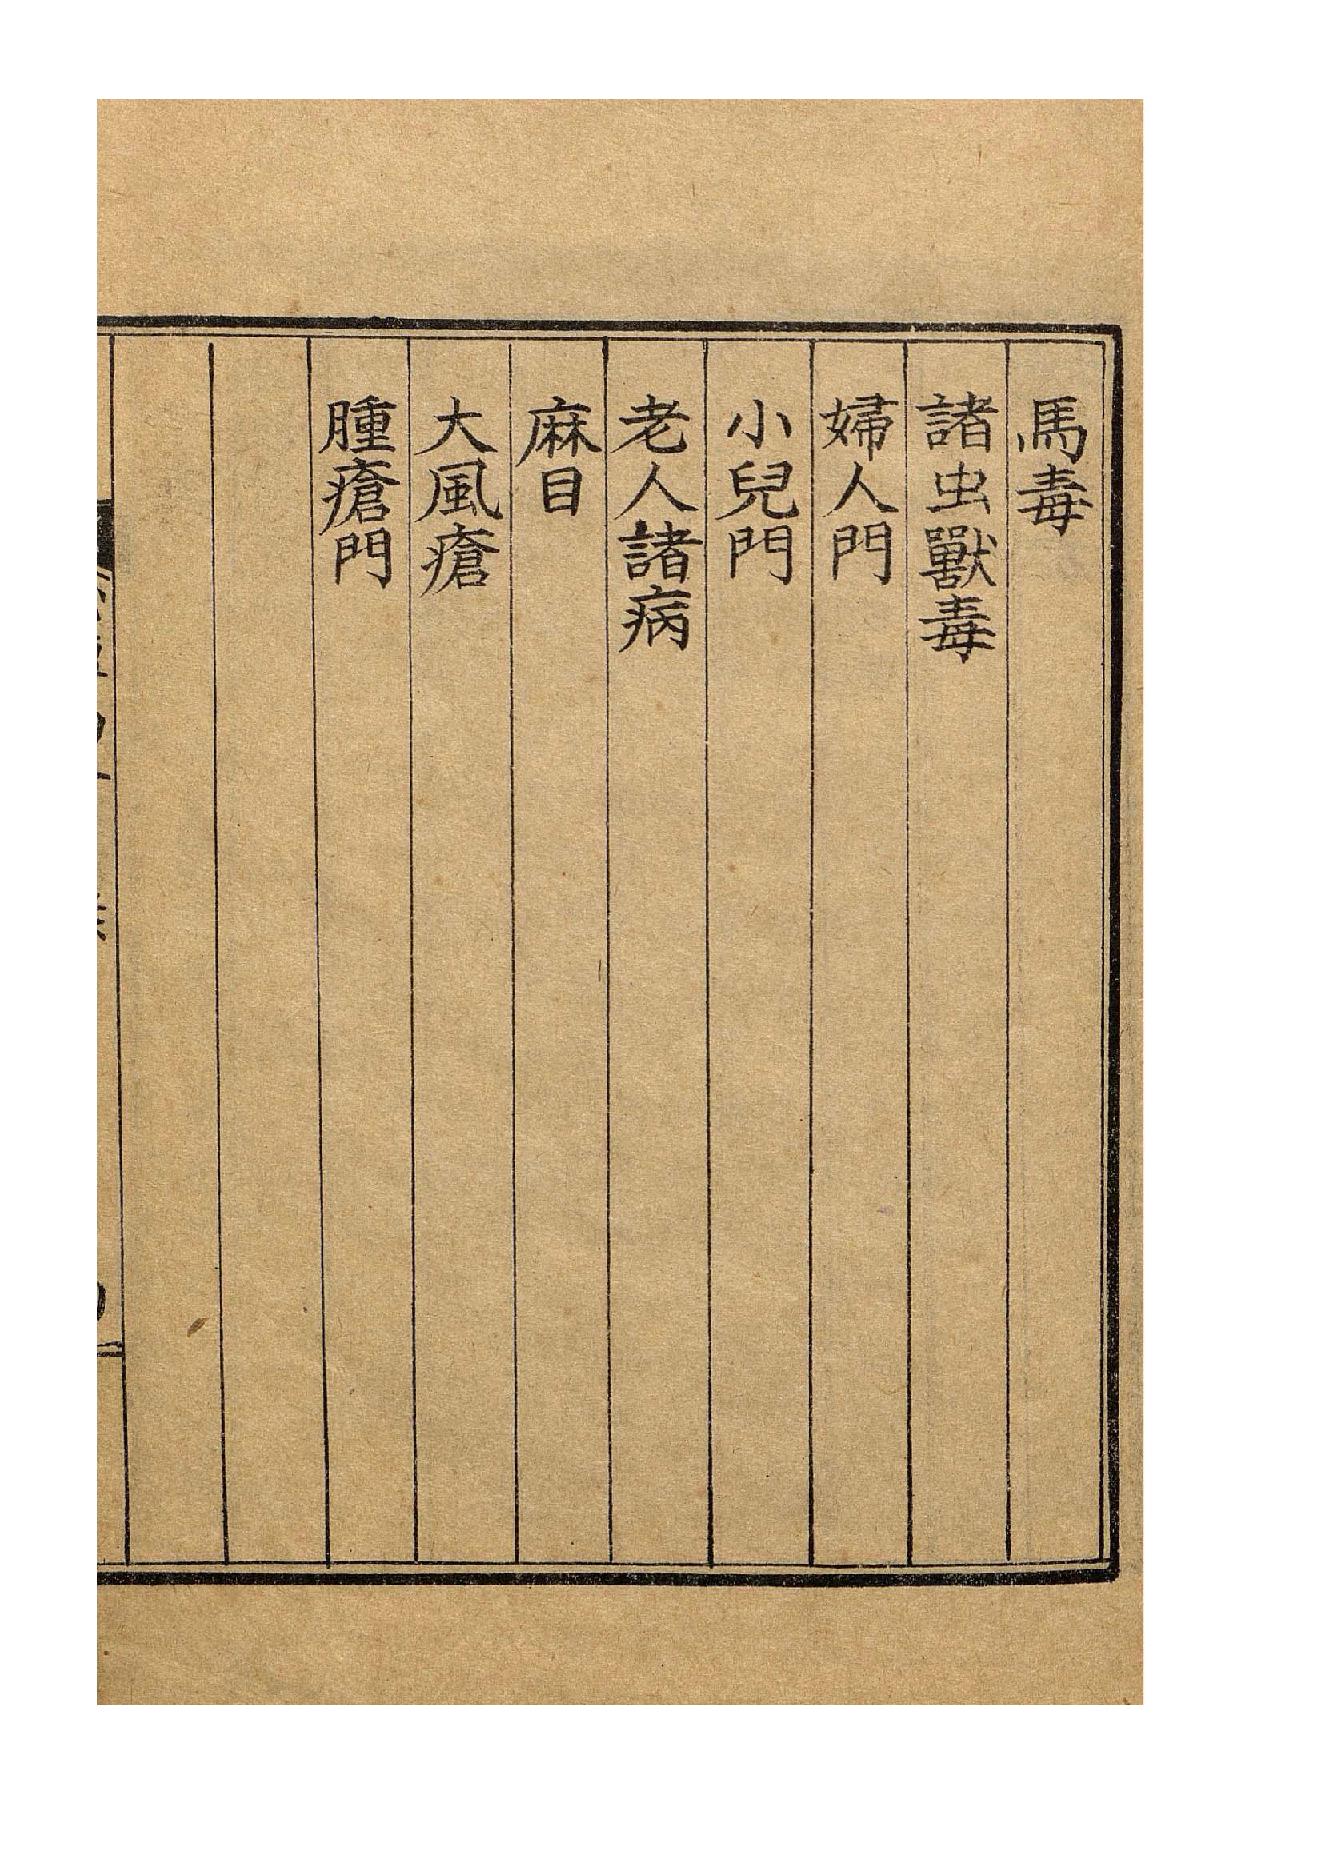 馬毒
諸虫獸毒
婦人門
小兒門
老人諸病
麻目
大風瘡
腫瘡門